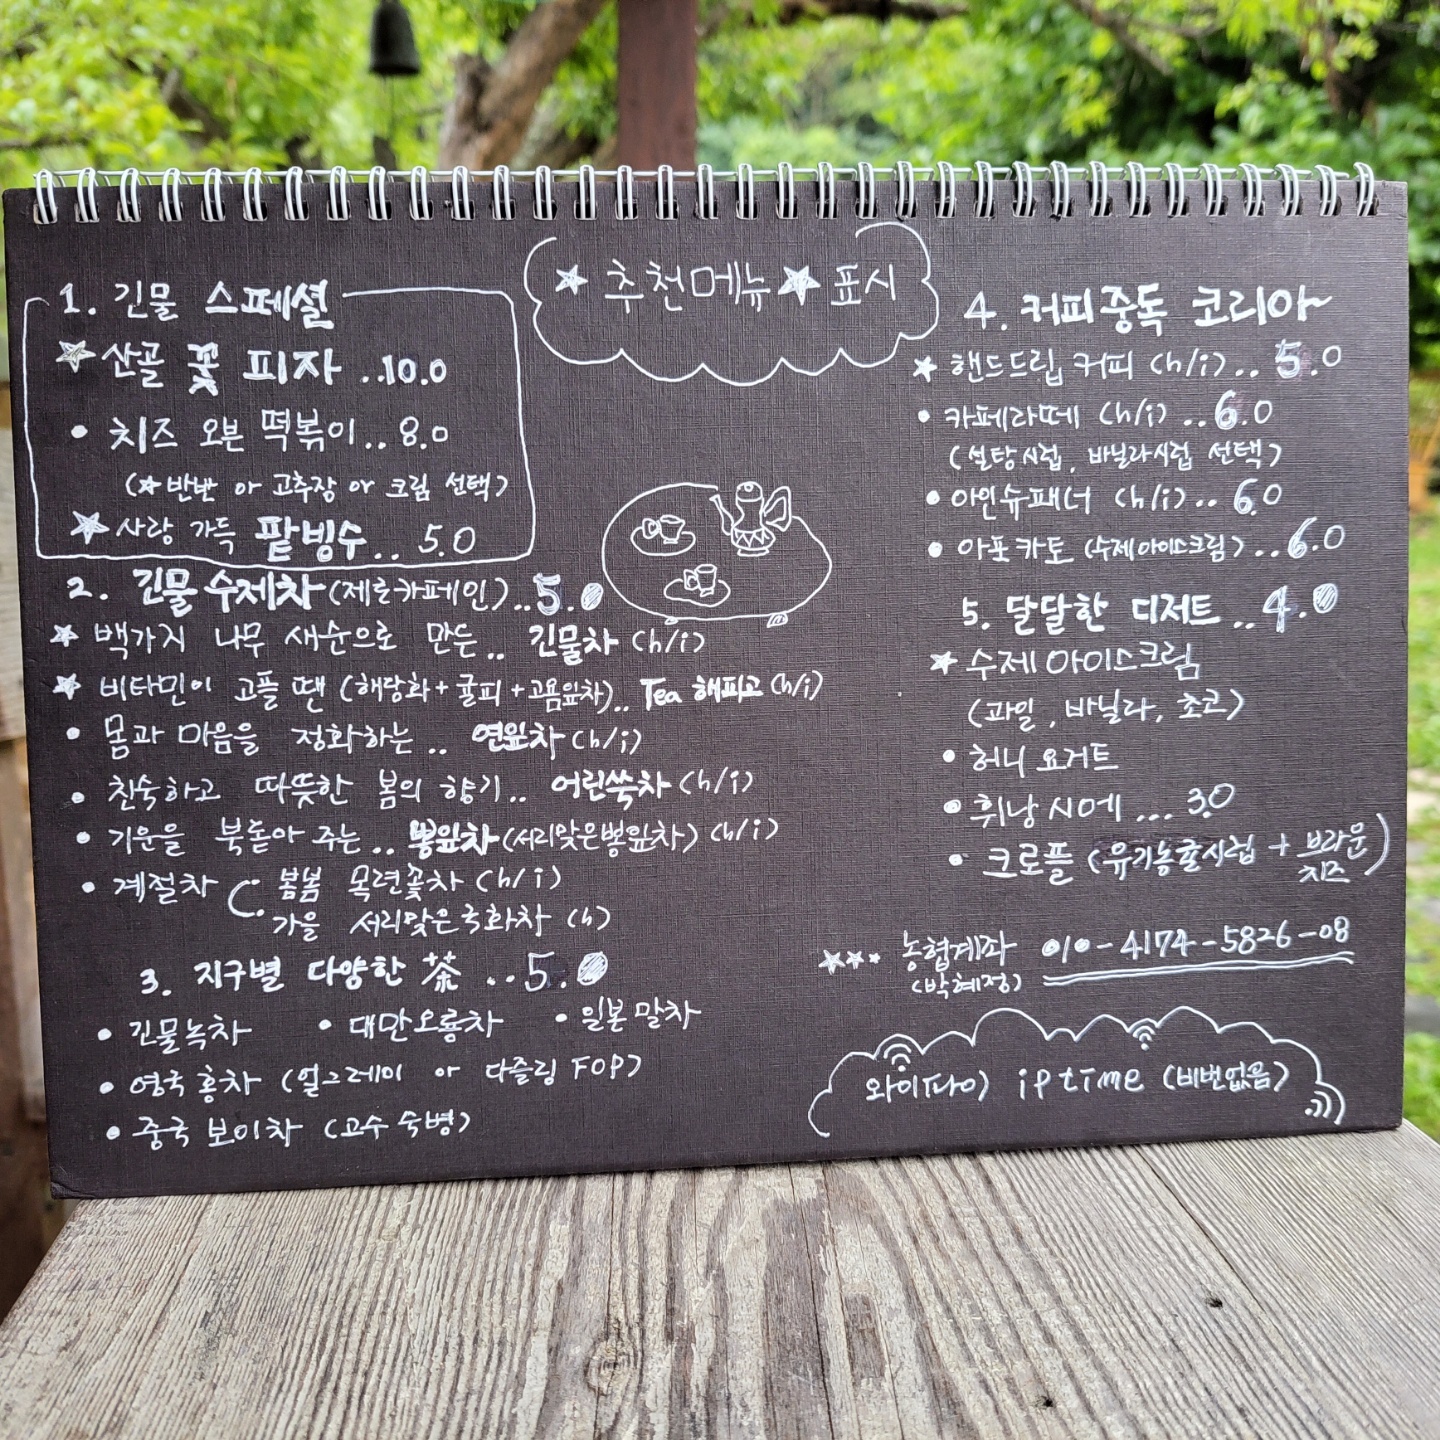 ★ 추천메뉴 ★ 표시
1. 긴물 스페셜
★ 산골 꽃 피자 ..10.0
• 치즈 오븐 떡볶이.. 8.0
(★반반 or 고추장 or 크림 선택)
★ 사랑 가득 팥빙수.. 5.0
2. 긴물 수제차(제로카페인)..5.0
★ 백가지 나무 새순으로 만든.. 긴물차 (h/i)
★ 비타민이 고플 땐 (해당화+귤피+고욤잎차).. Tea 해피고 (h/i)
• 몸과 마음을 정화하는.. 연잎차 (h/i)
• 친숙하고 따뜻한 봄의 향기.. 어린쑥차 (h/i)
• 기운을 북돋아 주는.. 뽕잎차(서리맞은뽕잎차) (h/i)
• 계절차 봄봄 목련꽃차 (h/i)
가을 서리맞은국화차 (h)
3. 지구별 다양한 茶 ..5.0
• 긴물녹차 • 대만오룡차 • 일본말차
• 영국홍차 (얼그레이 or 다즐링 FOP)
• 중국 보이차 (고수 숙병)
4. 커피중독 코리아~
★ 핸드드립 커피 (h/i).. 5.0
• 카페라떼 (h/i) ..6.0
(설탕시럽, 바닐라시럽 선택)
• 아인슈패너 (h/i).. 6.0
• 아포카토 (수제아이스크림)..6.0
5. 달달한 디저트 ..4.0
★ 수제 아이스크림
(과일, 바닐라, 초코)
• 허니 요거트
• 휘낭시에 ... 3.0
• 크로플 (유기농 시럽 + 브라운
치즈)
★★★ 농협계좌 010-4174-5826-08
(박혜정)
와이파이) iptime (비번없음)